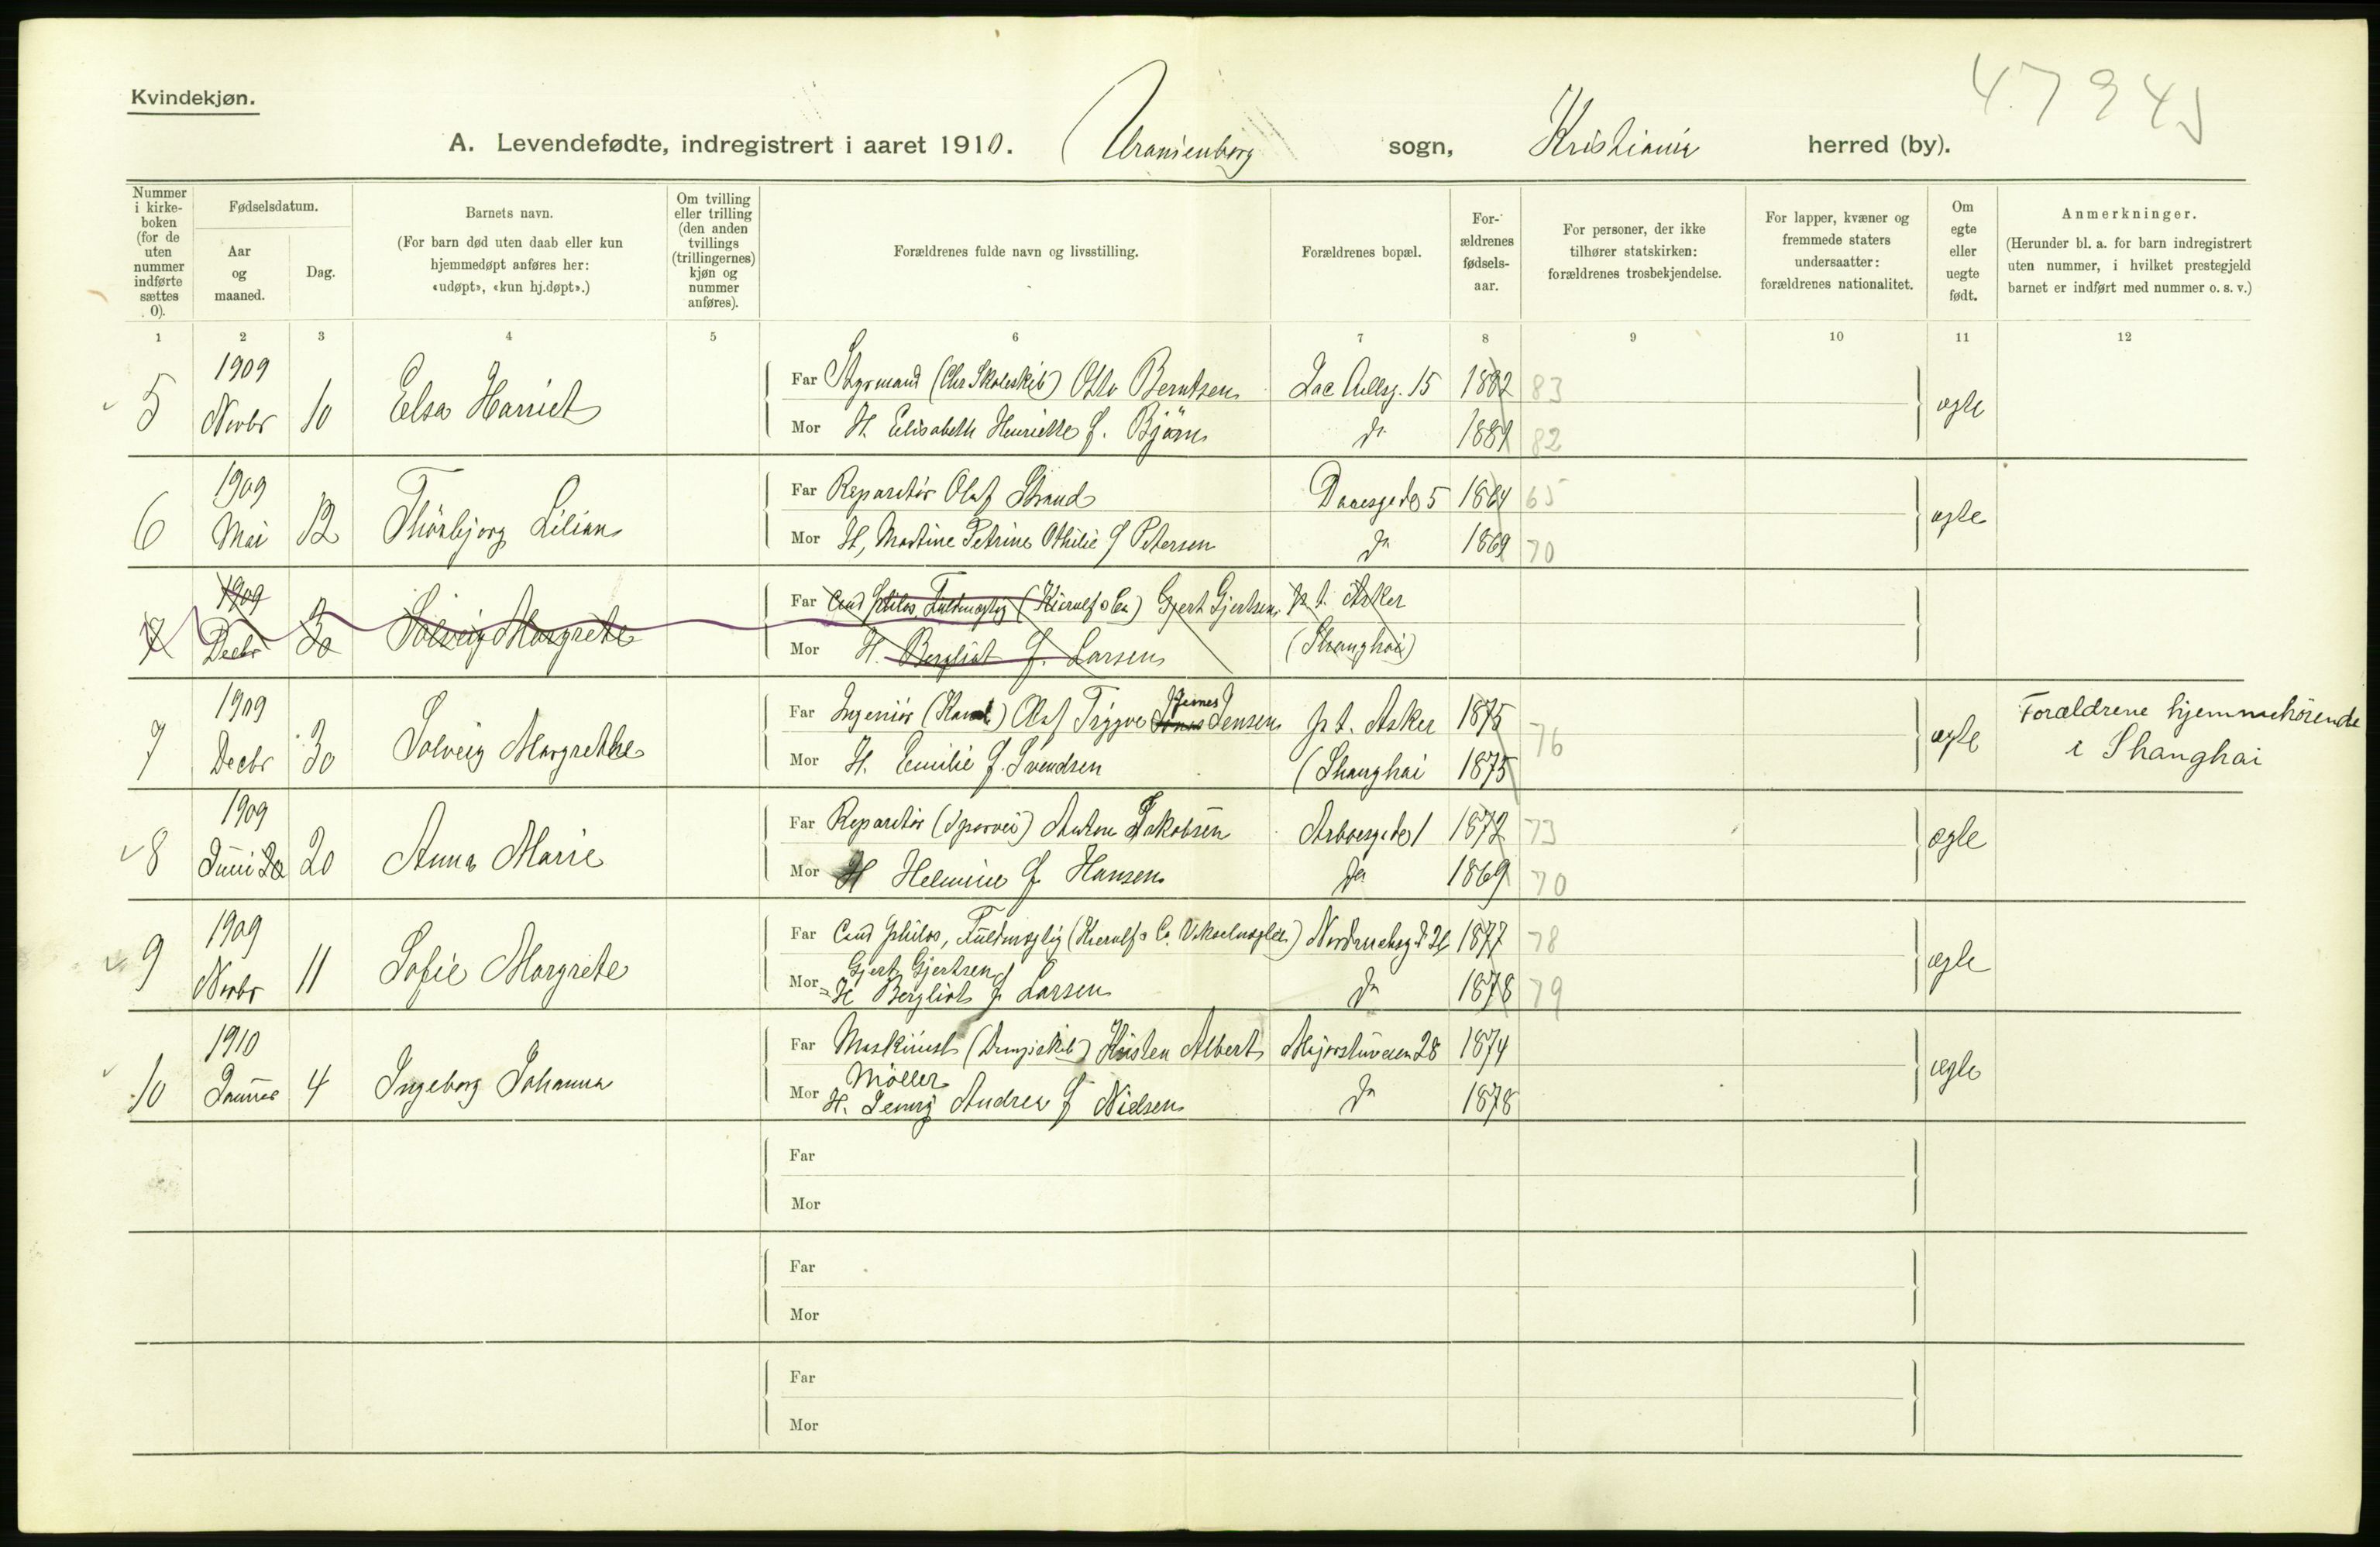 47945
Kvindekjøn.
A. Levendefødte, indregistrert i aaret 1910. Uranienborg sogn, Kristiania herred (by).
Nummer i kirkeboken (for de uten nummer indførte sættes 0).
Fødselsdatum.
Aar og maaned.
Dag.
Barnets navn.
(For barn død uten daab eller kun hjemmedøpt anføres her: «udøpt», «kun hj.døpt».)
Om tvilling eller trilling (den anden tvillings (trillingernes) kjøn og nummer anføres).
Forældrenes fulde navn og livsstilling.
Forældrenes bopæl.
For-ældrenes fødsels-aar.
For personer, der ikke tilhører statskirken: forældrenes trosbekjendelse.
For lapper, kvæner og fremmede staters undersaatter: forældrenes nationalitet.
Om egte eller uegte født.
Anmerkninger.
(Herunder bl. a. for barn indregistrert uten nummer, i hvilket prestegjeld barnet er indført med nummer o. s. v.)
1 2 3 4 5 6 7 8 9 10 11 12
5 1909 Novbr 10 Elsa Harriet
Far Styrmand (Chr Skoleskib) Otto Berntsen 15 1882 83
Mor H. Elisabeth Henriette f. Björn do 1881 82
ægte
6 1909 Mai 12 Thorbjorg Lilian
Far Reparatör Olaf Strand Daaesgade 5 1864 65
Mor H. Martine Petrine Othilie f Petersen do 1869 70
ægte
7 1909 Decbr 30 Solveig Margrete
Far Cand philos Fuldmægtig (Kierulf & Co) Gjert Gjertsen p. t. Asker
Mor H. Bergliot f. Larsen (Shanghai)
7 1909 Decbr 30 Solveig Margrethe
Far Ingeniör Olaf Trygve Jensen p t. Asker 1875 76
Mor H. Emilie f. Svendsen (Shanghai 1875
ægte
Forældrene hjemmehörende
i Shanghai
8 1909 Juni 20 20 Anna Marie
Far Reparatör (Sporvei) Anton Jakobsen Arboesgade 1 1872 73
Mor H Helmine f. Hansen do 1869 70
ægte
9 1909 Novbr 11 Sofie Margrete
Far Cand philos, Fuldmægtig (Kierulf & Co. Vekselmægler) 1877 78
Gjert Gjertsen
Mor H Bergliot f Larsen do 1878 79
ægte
10 1910 Januar 4 Ingeborg Johanna
Far Maskinist (Dampskib) Kristen Albert Majorstuveien 28 1874
Möller
Mor H. Jenny Andrea f Nielsen do 1878
ægte
Far
Mor
Far
Mor
Far
Mor